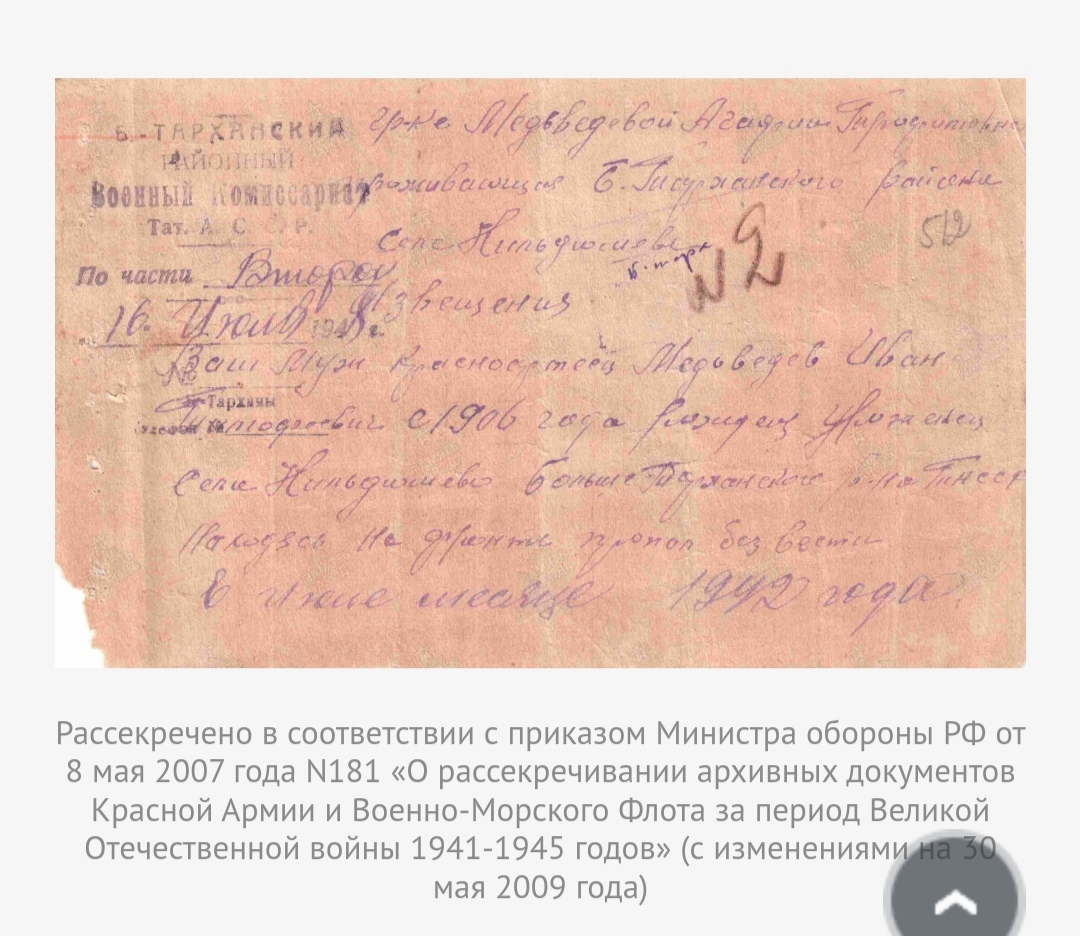 Б-ТАРХАНСКИЙ
РАЙОННЫЙ
Военный Комиссариат
Тат. А. С. С. Р.
По части Второй
16. Июля 194 г.
№
Б-Тарханы
гр-ке Медьведевой Агафии
проживающая Б. Тарханского района
Села Кильдюшева
Б. тарх
N2
512
Извещения
Ваш Муж Красноармеец Медьведев Иван
с 1906 года рождения Уроженец
Села Кильдюшево Больше Тарханского р-на ТАССР
Находясь На фронте пропал без вести
в Июне месяце 1942 года.
Рассекречено в соответствии с приказом Министра обороны РФ от
8 мая 2007 года N181 «О рассекречивании архивных документов
Красной Армии и Военно-Морского Флота за период Великой
Отечественной войны 1941-1945 годов» (с изменениями на 30
мая 2009 года)